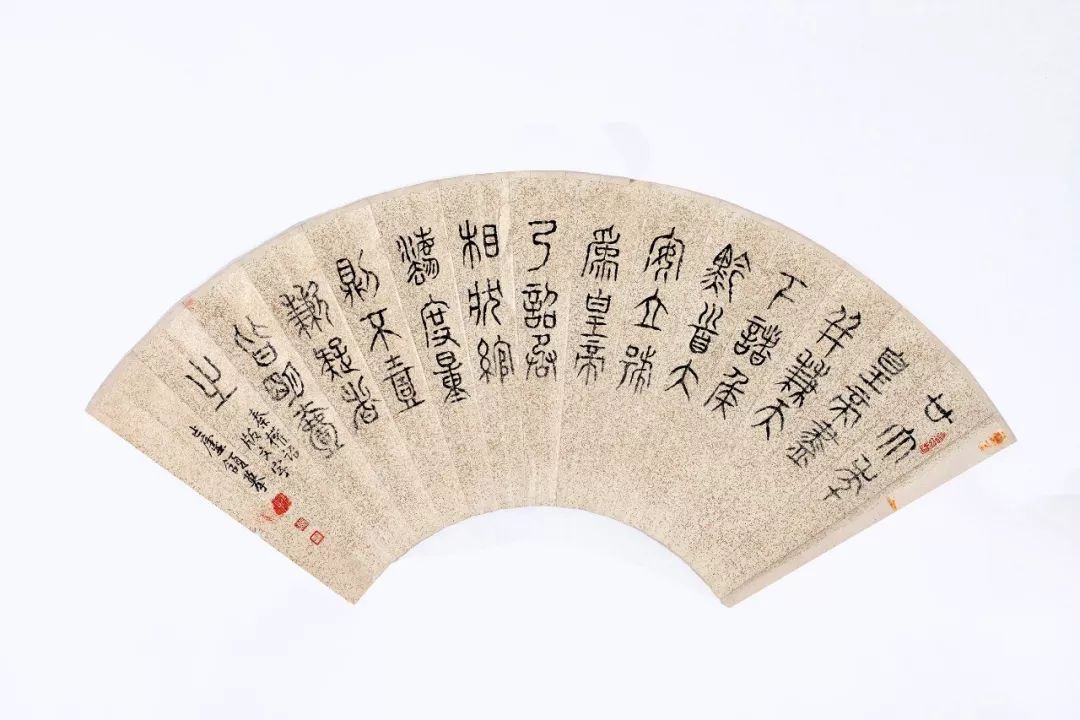 廿六年
皇帝盡
并兼天
下諸侯
黔首大
安立號
為皇帝
乃詔丞
相狀綰
灋度量
則不壹
歉疑者
皆明壹
之
秦權詔
版文字
摹